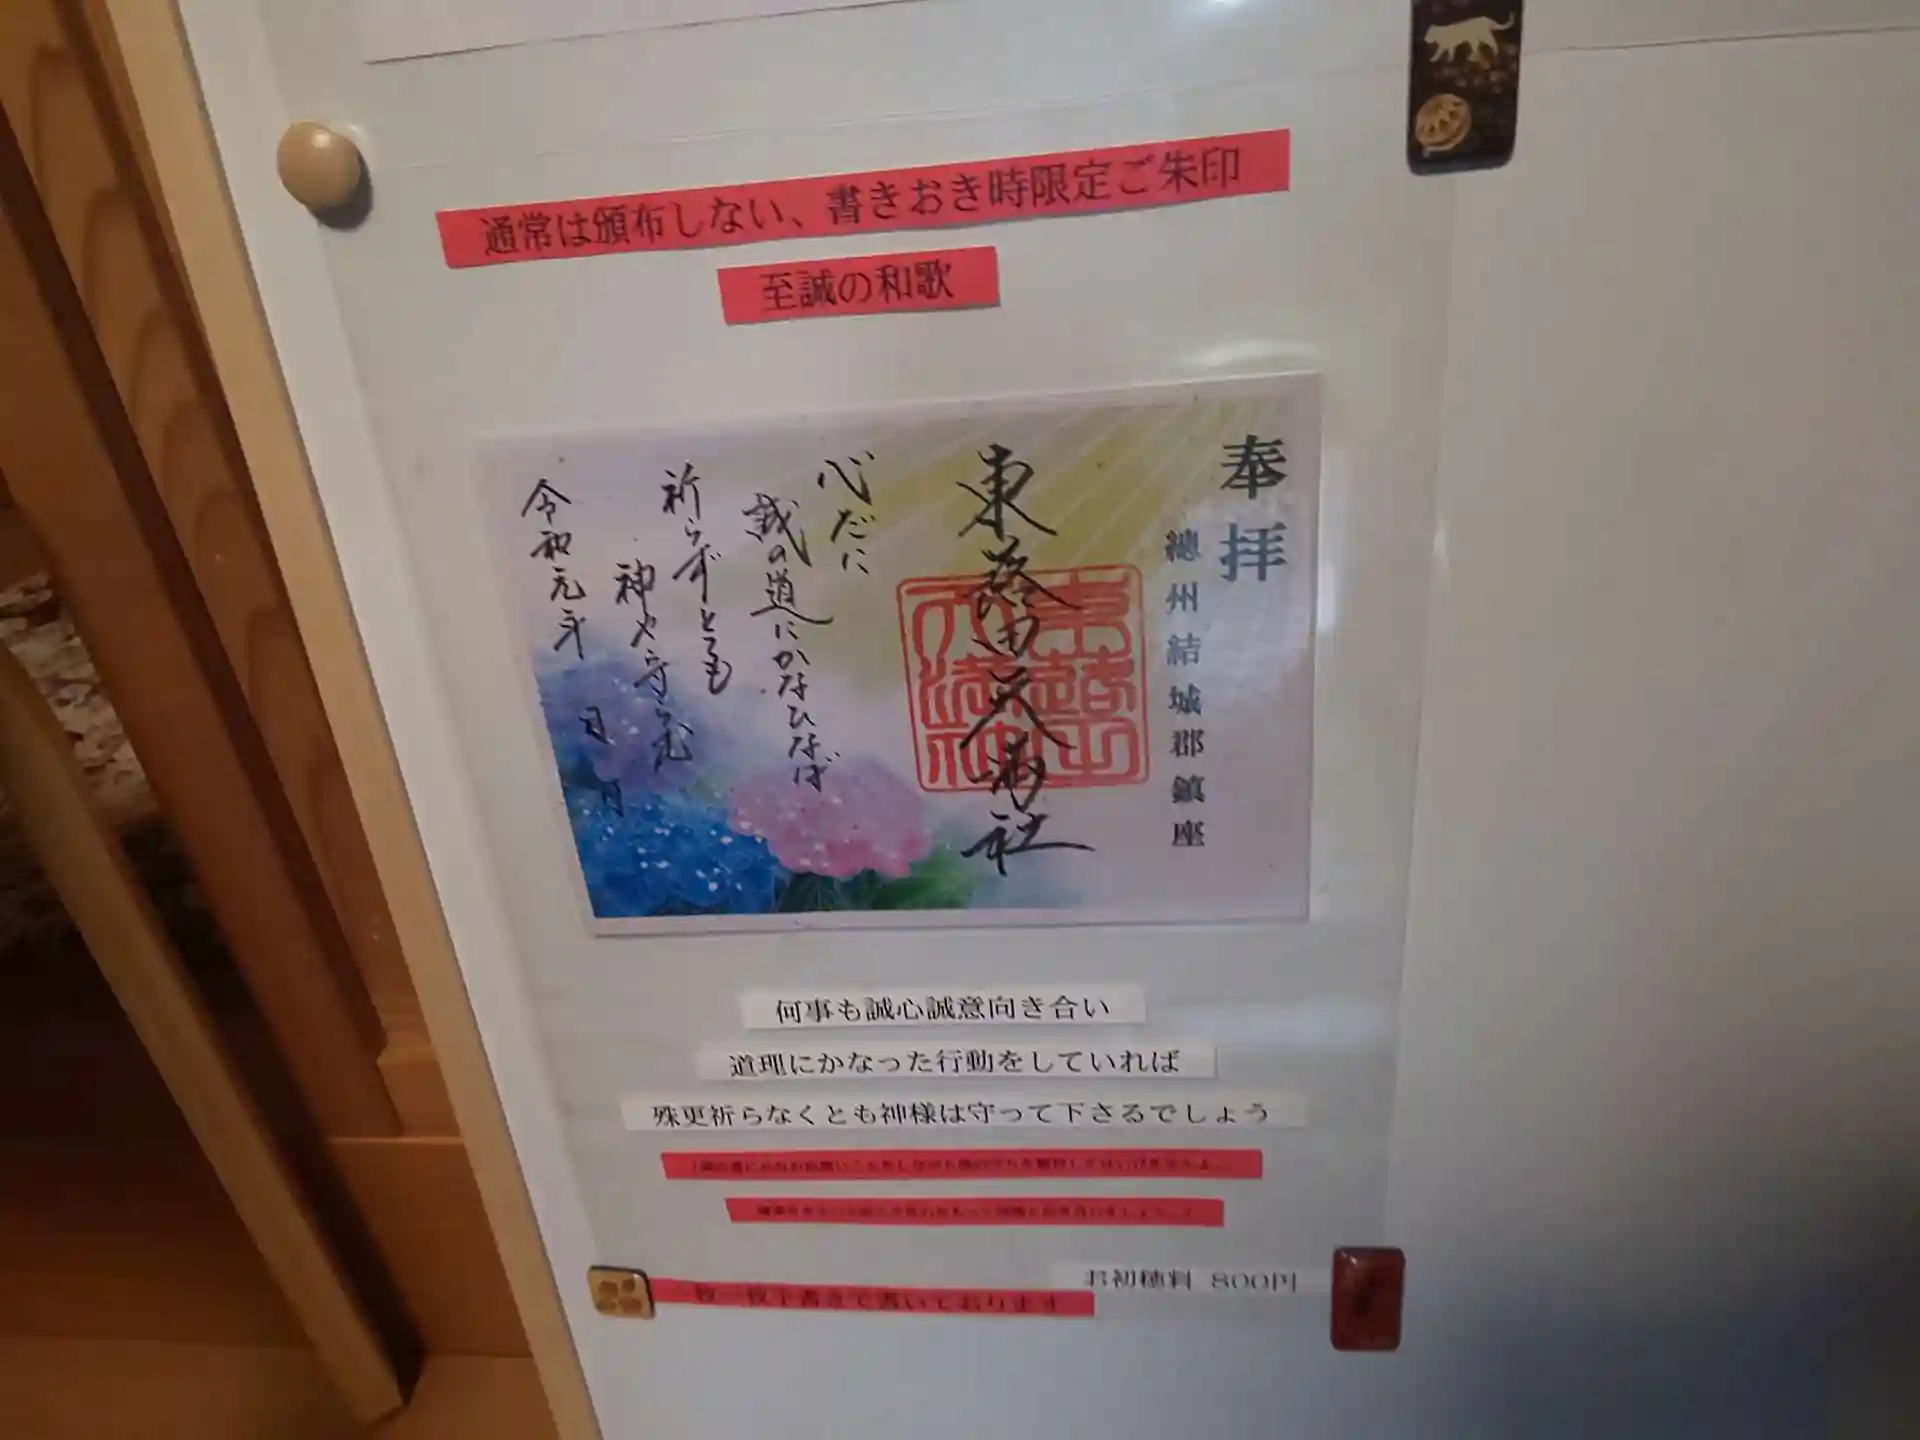 通常は頒布しない、書きおき時限定ご朱印
至誠の和歌
奉拝
總州結城郡鎮座
東蕗田天満社
心だに
誠の道にかなひなば
祈らずとても
神や守らむ
令和元年 月 日
何事も誠心誠意向き合い
道理にかなった行動をしていれば
殊更祈らなくとも神様は守って下さるでしょう
お初穂料 800円
一枚一枚手書きで書いております